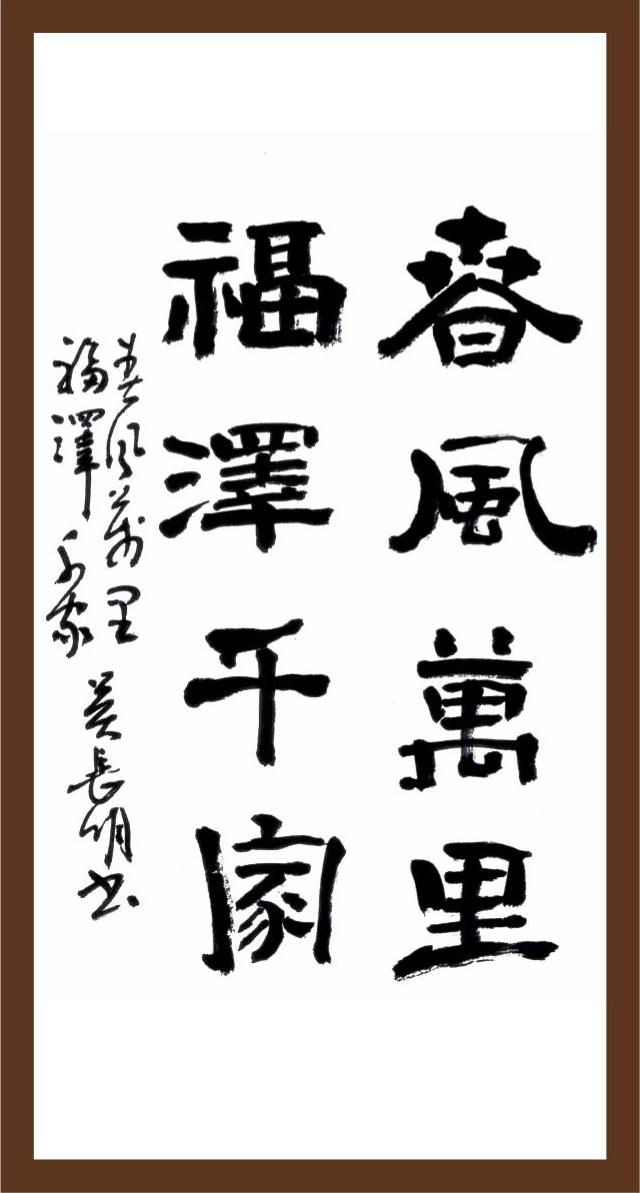 春風萬里
福澤千家
春风万里
福澤千家 吴長明书